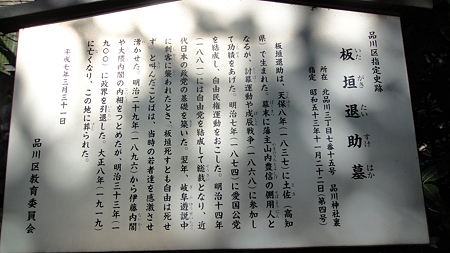 品川区指定史跡
板垣退助墓
いたがきたいすけはか
所在 北品川三丁目七番十五号 品川神社裏
指定 昭和五十三年十一月二十二日(第四号)
板垣退助は、天保八年(一八三七)に土佐(高知
県)で生まれた。幕末に藩主山内豊信の側用人と
なるが、討幕運動や戊辰戦争(一八六八)に参加し
て功績をあげた。明治七年(一八七四)に愛国公党
を結成し、自由民権運動をおこした。明治十四年
(一八八一)には自由党を結成して総裁となり、近
代日本の政党の基礎を築いた。翌年、岐阜遊説中
に刺客に襲われたとき、板垣死すとも自由は死せ
ず、と叫んだことは、当時の若者達を感激させ
湧かせた。明治二十九年(一八九六)から伊藤内閣
や大隈内閣の内相をつとめたが、明治三十三年(一
九〇〇)に政界を引退した。大正八年(一九一九)
に亡くなり、この地に葬られた。
平成七年三月三十一日
品川区教育委員会